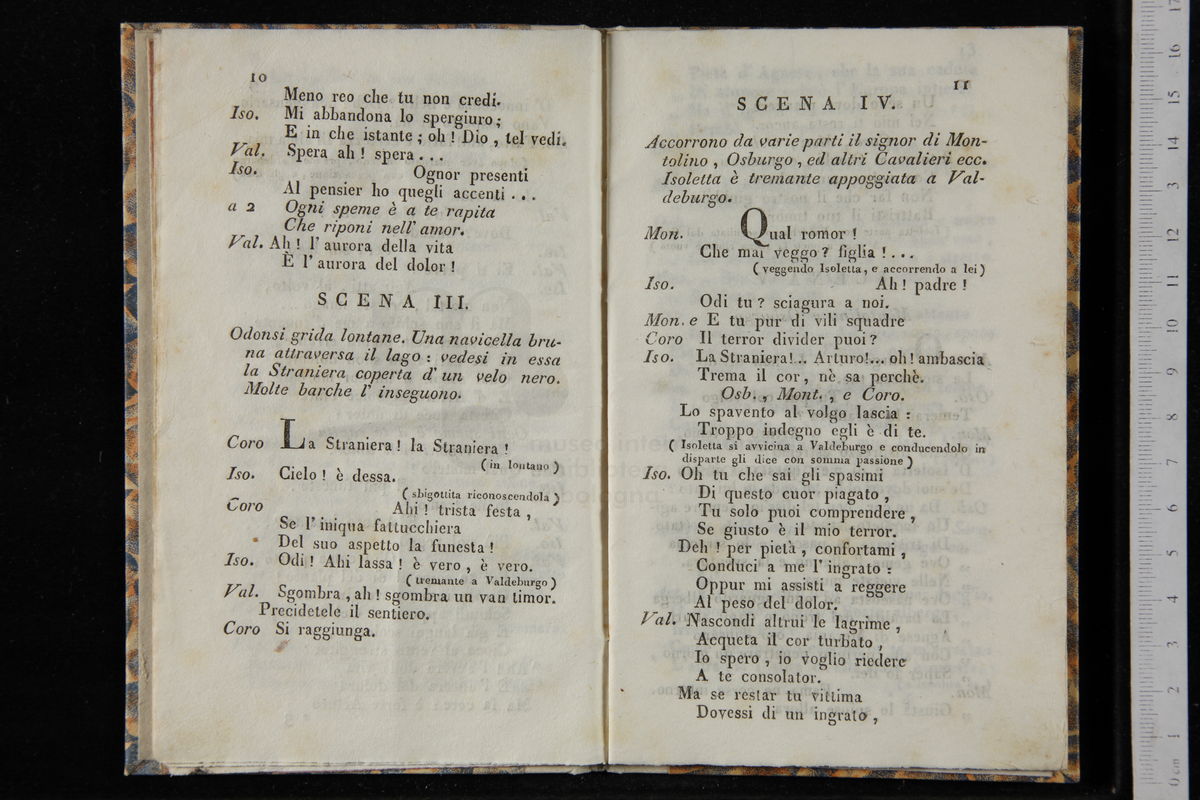 10
Meno reo che tu non credi.
Iso. Mi abbandona lo spergiuro;
E in che istante; oh! Dio, tel vedi.
Val. Spera ah! spera...
Iso. Ognor presenti
Al pensier ho quegli accenti...
a 2 Ogni speme è a te rapita
Che riponi nell' amor.
Val. Ah! l'aurora della vita
È l'aurora del dolor!
SCENA III.
Odonsi grida lontane. Una navicella bru-
na attraversa il lago: vedesi in essa
la Straniera coperta d'un velo nero.
Molte barche l'inseguono.
Coro La Straniera! la Straniera!
(in lontano)
Iso. Cielo! è dessa.
(sbigottita riconoscendola)
Coro Ahi! trista festa,
Se l'iniqua fattucchiera
Del suo aspetto la funesta!
Iso. Odi! Ahi lassa! è vero, è vero.
(tremante a Valdeburgo)
Val. Sgombra, ah! sgombra un van timor.
Precidetele il sentiero.
Coro Si raggiunga.
11
SCENA IV.
Accorrono da varie parti il signor di Mon-
tolino, Osburgo, ed altri Cavalieri ecc.
Isoletta è tremante appoggiata a Val-
deburgo.
Mon. Qual romor!
Che mai veggo? figlia!...
(veggendo Isoletta, e accorrendo a lei)
Iso. Ah! padre!
Odi tu? sciagura a noi.
Mon. e E tu pur di vili squadre
Coro Il terror divider puoi?
Iso. La Straniera!... Arturo!... oh! ambascia
Trema il cor, nè sa perchè.
Osb., Mont., e Coro.
Lo spavento al volgo lascia:
Troppo indegno egli è di te.
(Isoletta si avvicina a Valdeburgo e conducendolo in
disparte gli dice con somma passione)
Iso. Oh tu che sai gli spasimi
Di questo cuor piagato,
Tu solo puoi comprendere,
Se giusto è il mio terror.
Deh! per pietà, confortami,
Conduci a me l'ingrato:
Oppur mi assisti a reggere
Al peso del dolor.
Val. Nascondi altrui le lagrime,
Acqueta il cor turbato,
Io spero, io voglio riedere
A te consolator.
Ma se restar tu vittima
Dovessi di un ingrato,